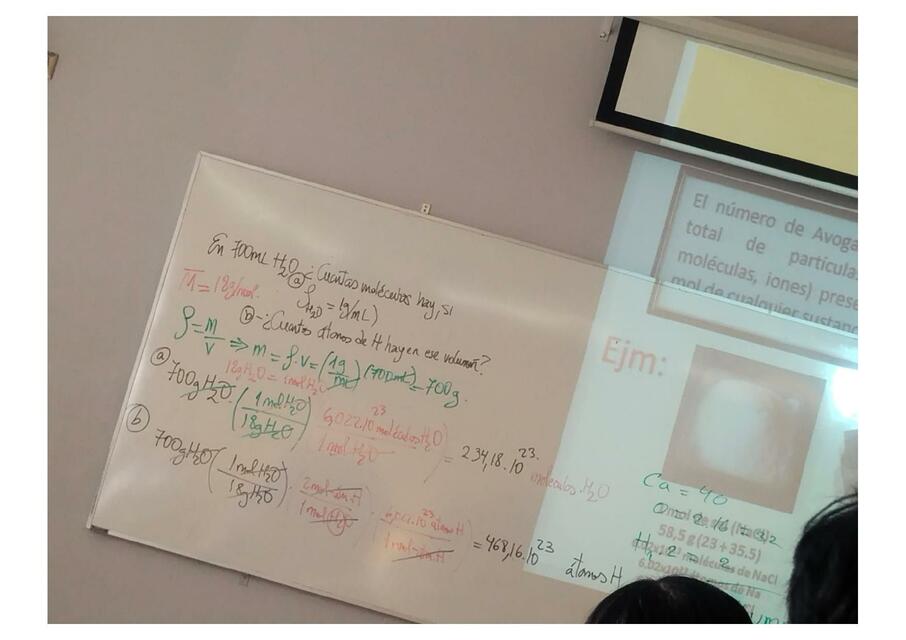 En 700mL H₂O ¿Cuantas moléculas hay, si
ⓐ ρ H₂O = 1g/mL)
M̅ = 18g/mol.
ⓑ-¿Cuantos átomos de H hay en ese volumen?
ρ = m/v ⇒ m = ρ.v = (1g/mL)(700mL) = 700g.
18g H₂O = 1mol H₂O
ⓐ 700g H₂O . (1mol H₂O/18g H₂O) (6,022.10²³ moléculas H₂O/1mol H₂O) = 234,18.10²³ moléculas H₂O
ⓑ 700g H₂O (1mol H₂O/18g H₂O) . (2mol H/1mol H₂O) . (6,022.10²³ átomos H/1mol H) = 468,16.10²³ átomos H
El número de Avoga
total de partículas
moléculas, iones) prese
mol de cualquier sustanc
Ejm:
Ca = 40
O = 2.16 = 32
H, 2 = 2
(NaCl)
58,5 g (23 + 35.5)
moléculas de NaCl
de Na